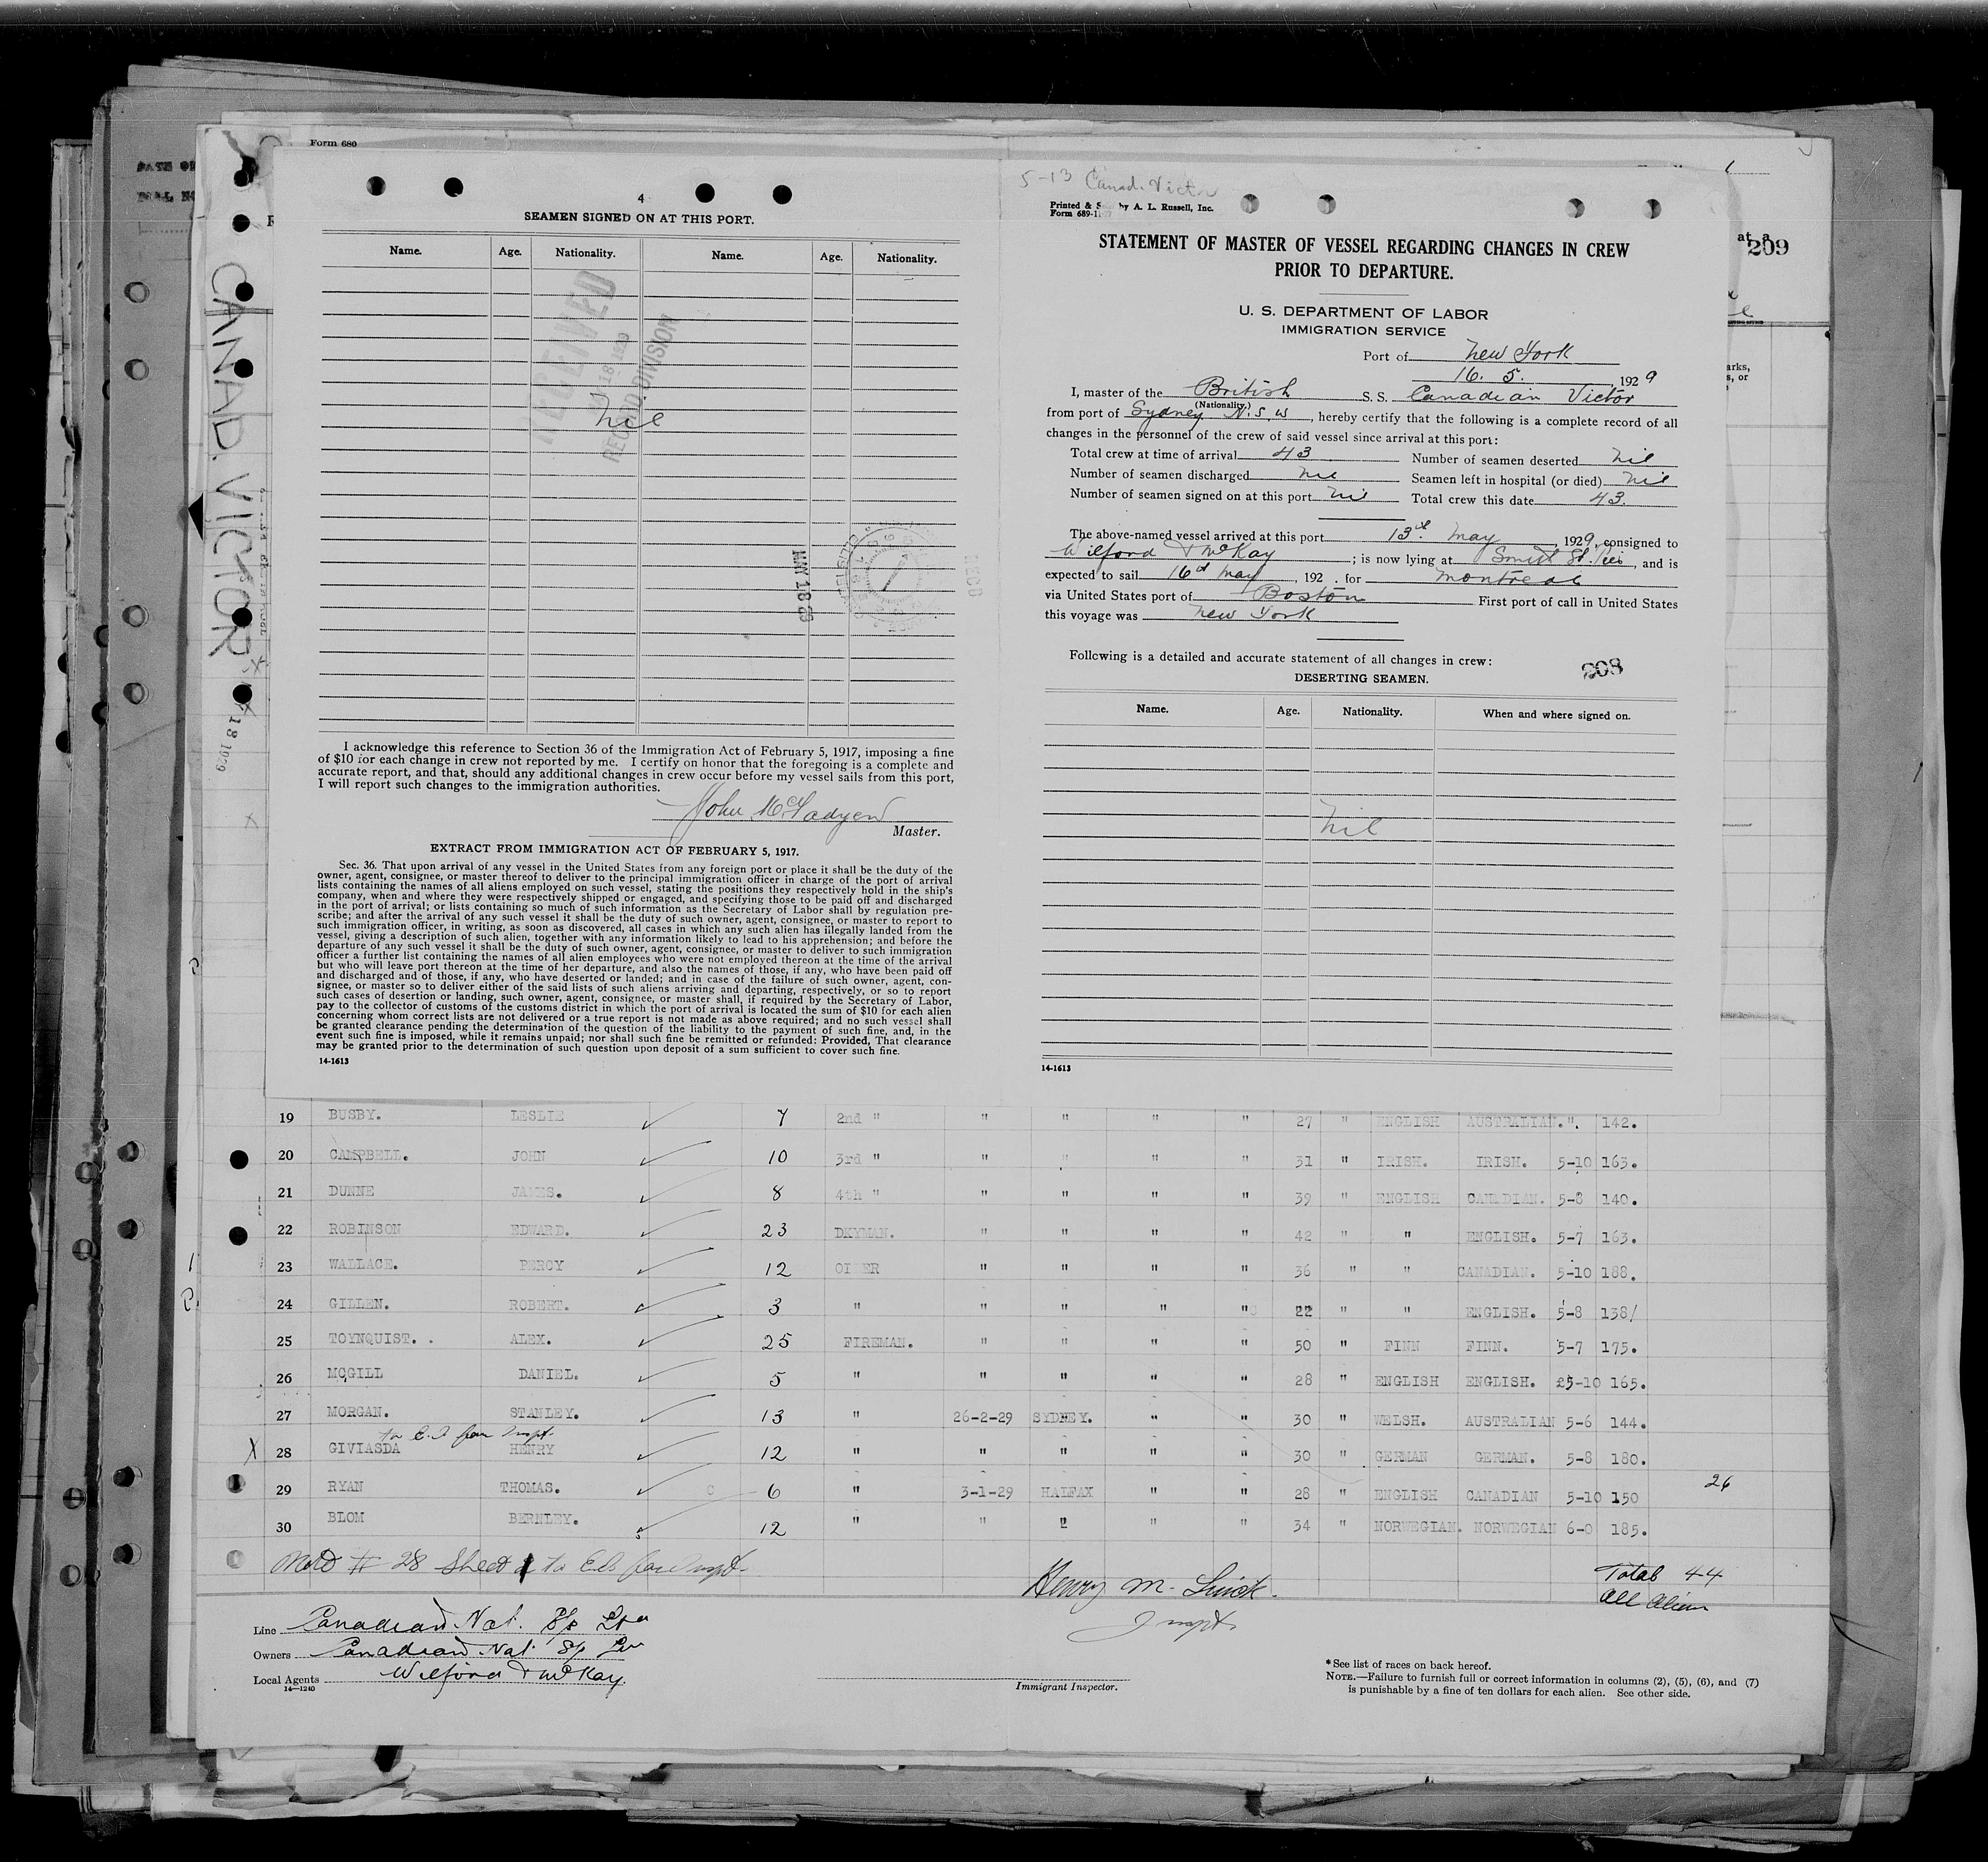 Form 680
209
CANAD. VICTOR
4
SEAMEN SIGNED ON AT THIS PORT.
Name. Age. Nationality. Name. Age. Nationality.
RECEIVED
RECORD DIVISION
nil
MAY 18 29
I acknowledge this reference to Section 36 of the Immigration Act of February 5, 1917, imposing a fine
of $10 for each change in crew not reported by me. I certify on honor that the foregoing is a complete and
accurate report, and that, should any additional changes in crew occur before my vessel sails from this port,
I will report such changes to the immigration authorities.
John McFadyen
Master.
EXTRACT FROM IMMIGRATION ACT OF FEBRUARY 5, 1917.
Sec. 36. That upon arrival of any vessel in the United States from any foreign port or place it shall be the duty of the
owner, agent, consignee, or master thereof to deliver to the principal immigration officer in charge of the port of arrival
lists containing the names of all aliens employed on such vessel, stating the positions they respectively hold in the ship's
company, when and where they were respectively shipped or engaged, and specifying those to be paid off and discharged
in the port of arrival; or lists containing so much of such information as the Secretary of Labor shall by regulation pre-
scribe; and after the arrival of any such vessel it shall be the duty of such owner, agent, consignee, or master to report to
such immigration officer, in writing, as soon as discovered, all cases in which any such alien has illegally landed from the
vessel, giving a description of such alien, together with any information likely to lead to his apprehension; and before the
departure of any such vessel it shall be the duty of such owner, agent, consignee, or master to deliver to such immigration
officer a further list containing the names of all alien employees who were not employed thereon at the time of the arrival
but who will leave port thereon at the time of her departure, and also the names of those, if any, who have been paid off
and discharged and of those, if any, who have deserted or landed; and in case of the failure of such owner, agent, con-
signee, or master so to deliver either of the said lists of such aliens arriving and departing, respectively, or so to report
such cases of desertion or landing, such owner, agent, consignee, or master shall, if required by the Secretary of Labor,
pay to the collector of customs of the customs district in which the port of arrival is located the sum of $10 for each alien
concerning whom correct lists are not delivered or a true report is not made as above required; and no such vessel shall
be granted clearance pending the determination of the question of the liability to the payment of such fine, and, in the
event such fine is imposed, while it remains unpaid; nor shall such fine be remitted or refunded: Provided, That clearance
may be granted prior to the determination of such question upon deposit of a sum sufficient to cover such fine.
14-1613
5-13 Canad. Victor
Printed & S by A. L. Russell, Inc.
Form 689
STATEMENT OF MASTER OF VESSEL REGARDING CHANGES IN CREW
PRIOR TO DEPARTURE.
U. S. DEPARTMENT OF LABOR
IMMIGRATION SERVICE
Port of New York
16. 5. , 1929
I, master of the British S. S. Canadian Victor
(Nationality.)
from port of Sydney N.S.W , hereby certify that the following is a complete record of all
changes in the personnel of the crew of said vessel since arrival at this port:
Total crew at time of arrival 43 Number of seamen deserted nil
Number of seamen discharged nil Seamen left in hospital (or died) nil
Number of seamen signed on at this port nil Total crew this date 43.
The above-named vessel arrived at this port 13th May , 1929, consigned to
Wilford & McKay ; is now lying at Smith St. Pier , and is
expected to sail 16th May , 192 . for Montreal
via United States port of Boston First port of call in United States
this voyage was New York
Following is a detailed and accurate statement of all changes in crew:
208
DESERTING SEAMEN.
Name. Age. Nationality. When and where signed on.
nil
14-1613
19 BUSBY. LESLIE 7 2nd " " " " " 27 " ENGLISH AUSTRALIAN. ". 142.
20 CAMPBELL. JOHN 10 3rd " " " " " 31 " IRISH. IRISH. 5-10 163.
21 DUNNE JAMES. 8 4th " " " " " 39 " ENGLISH CANADIAN. 5-8 140.
22 ROBINSON EDWARD. 23 DKYMAN. " " " " 42 " " ENGLISH. 5-7 163.
23 WALLACE. PERCY 12 OILER " " " " 36 " " CANADIAN. 5-10 188.
24 GILLEN. ROBERT. 3 " " " " " 22 " " ENGLISH. 5-8 138/
25 TOYNQUIST. . ALEX. 25 FIREMAN. " " " " 50 " FINN FINN. 5-7 175.
26 MCGILL DANIEL. 5 " " " " " 28 " ENGLISH ENGLISH. 5-10 165.
27 MORGAN. STANLEY. 13 " 26-2-29 SYDNEY. " " 30 " WELSH. AUSTRALIAN 5-6 144.
to E.I for Inspt.
X 28 GIVIASDA HENRY 12 " " " " " 30 " GERMAN GERMAN. 5-8 180.
29 RYAN THOMAS. 6 " 3-1-29 HALFAX " " 28 " ENGLISH CANADIAN 5-10 150
26
30 BLOM BERNLEY. 12 " " " " " 34 " NORWEGIAN. NORWEGIAN 6-0 185.
# 28 Sheet 1 to E.I. for Inspt.
Henry M.
Inspt.
Total 44
All Alien
Line Canadian Nat. S/s Ltd
Owners Canadian Nat. S/s Ltd
Local Agents Wilford & McKay.
14—1240
Immigrant Inspector.
*See list of races on back hereof.
NOTE.—Failure to furnish full or correct information in columns (2), (5), (6), and (7)
is punishable by a fine of ten dollars for each alien. See other side.